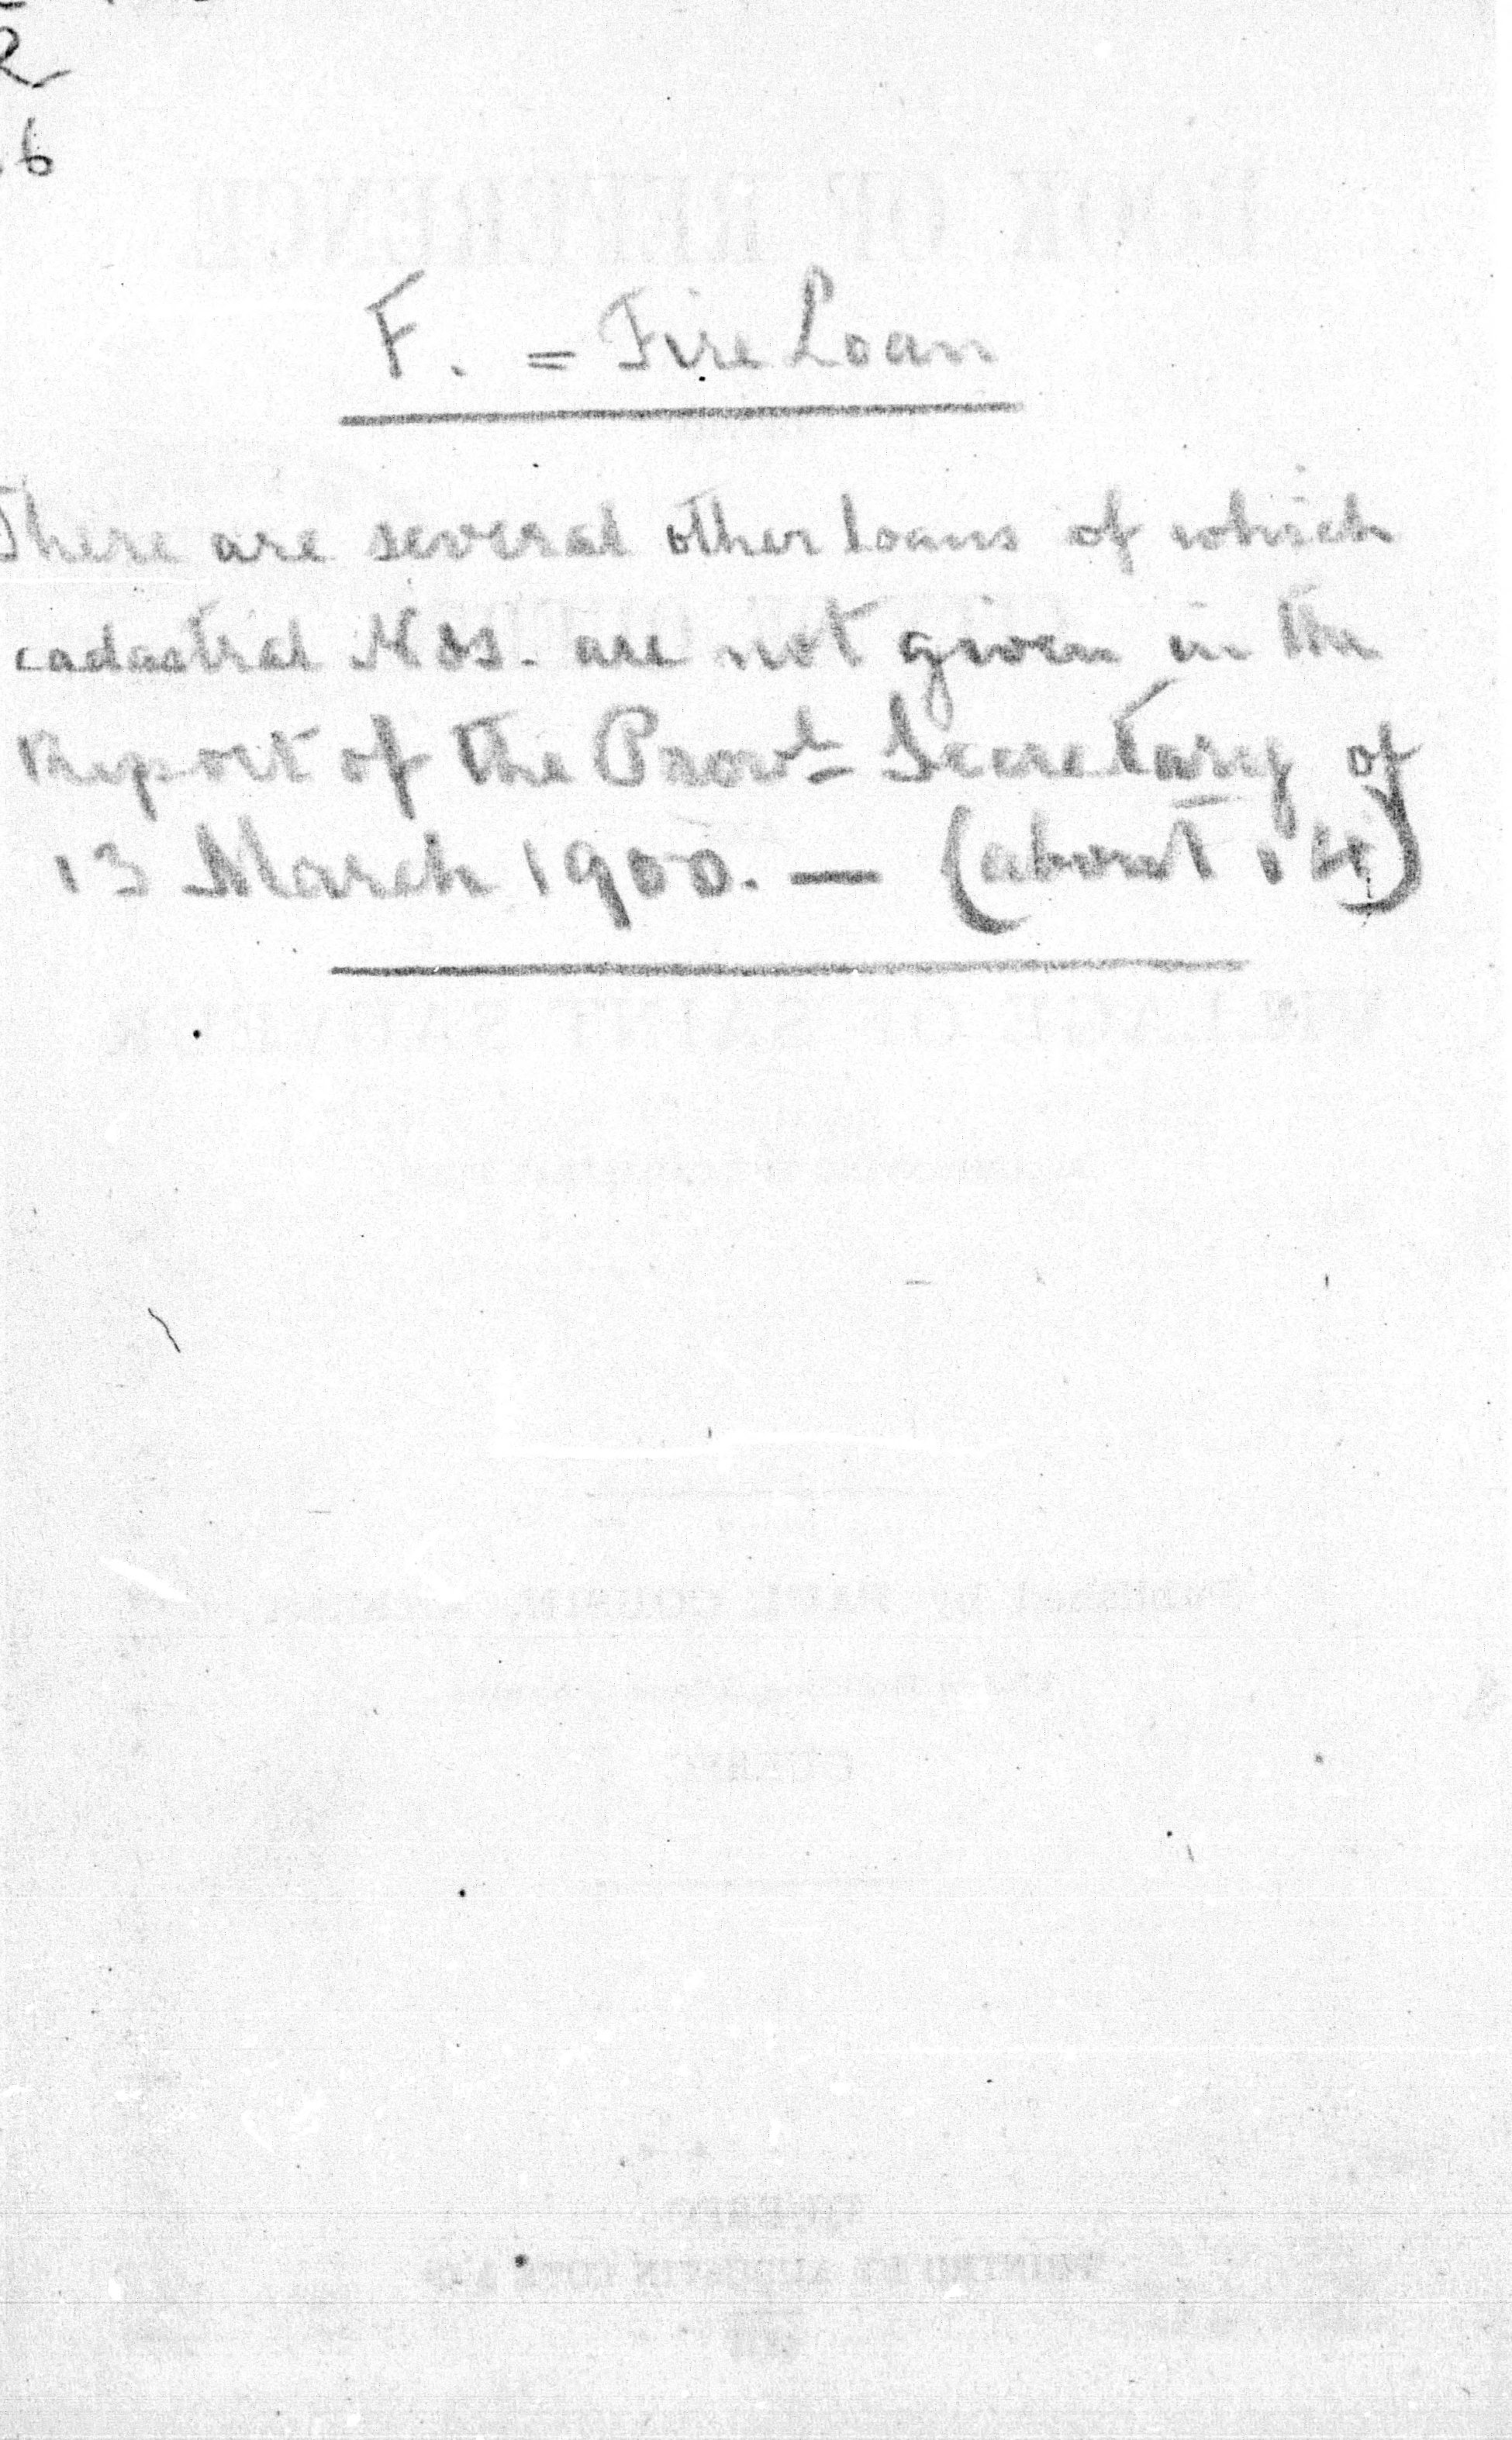 2
6
F. = Fire Loan
There are several other loans of which
cadastral Nos. are not given in the
Report of the Provl Secretary of
13 March 1900. — (about 14)